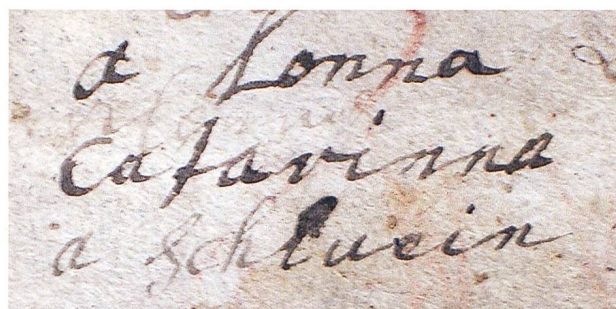 a donna
Catarinna
a Schluein